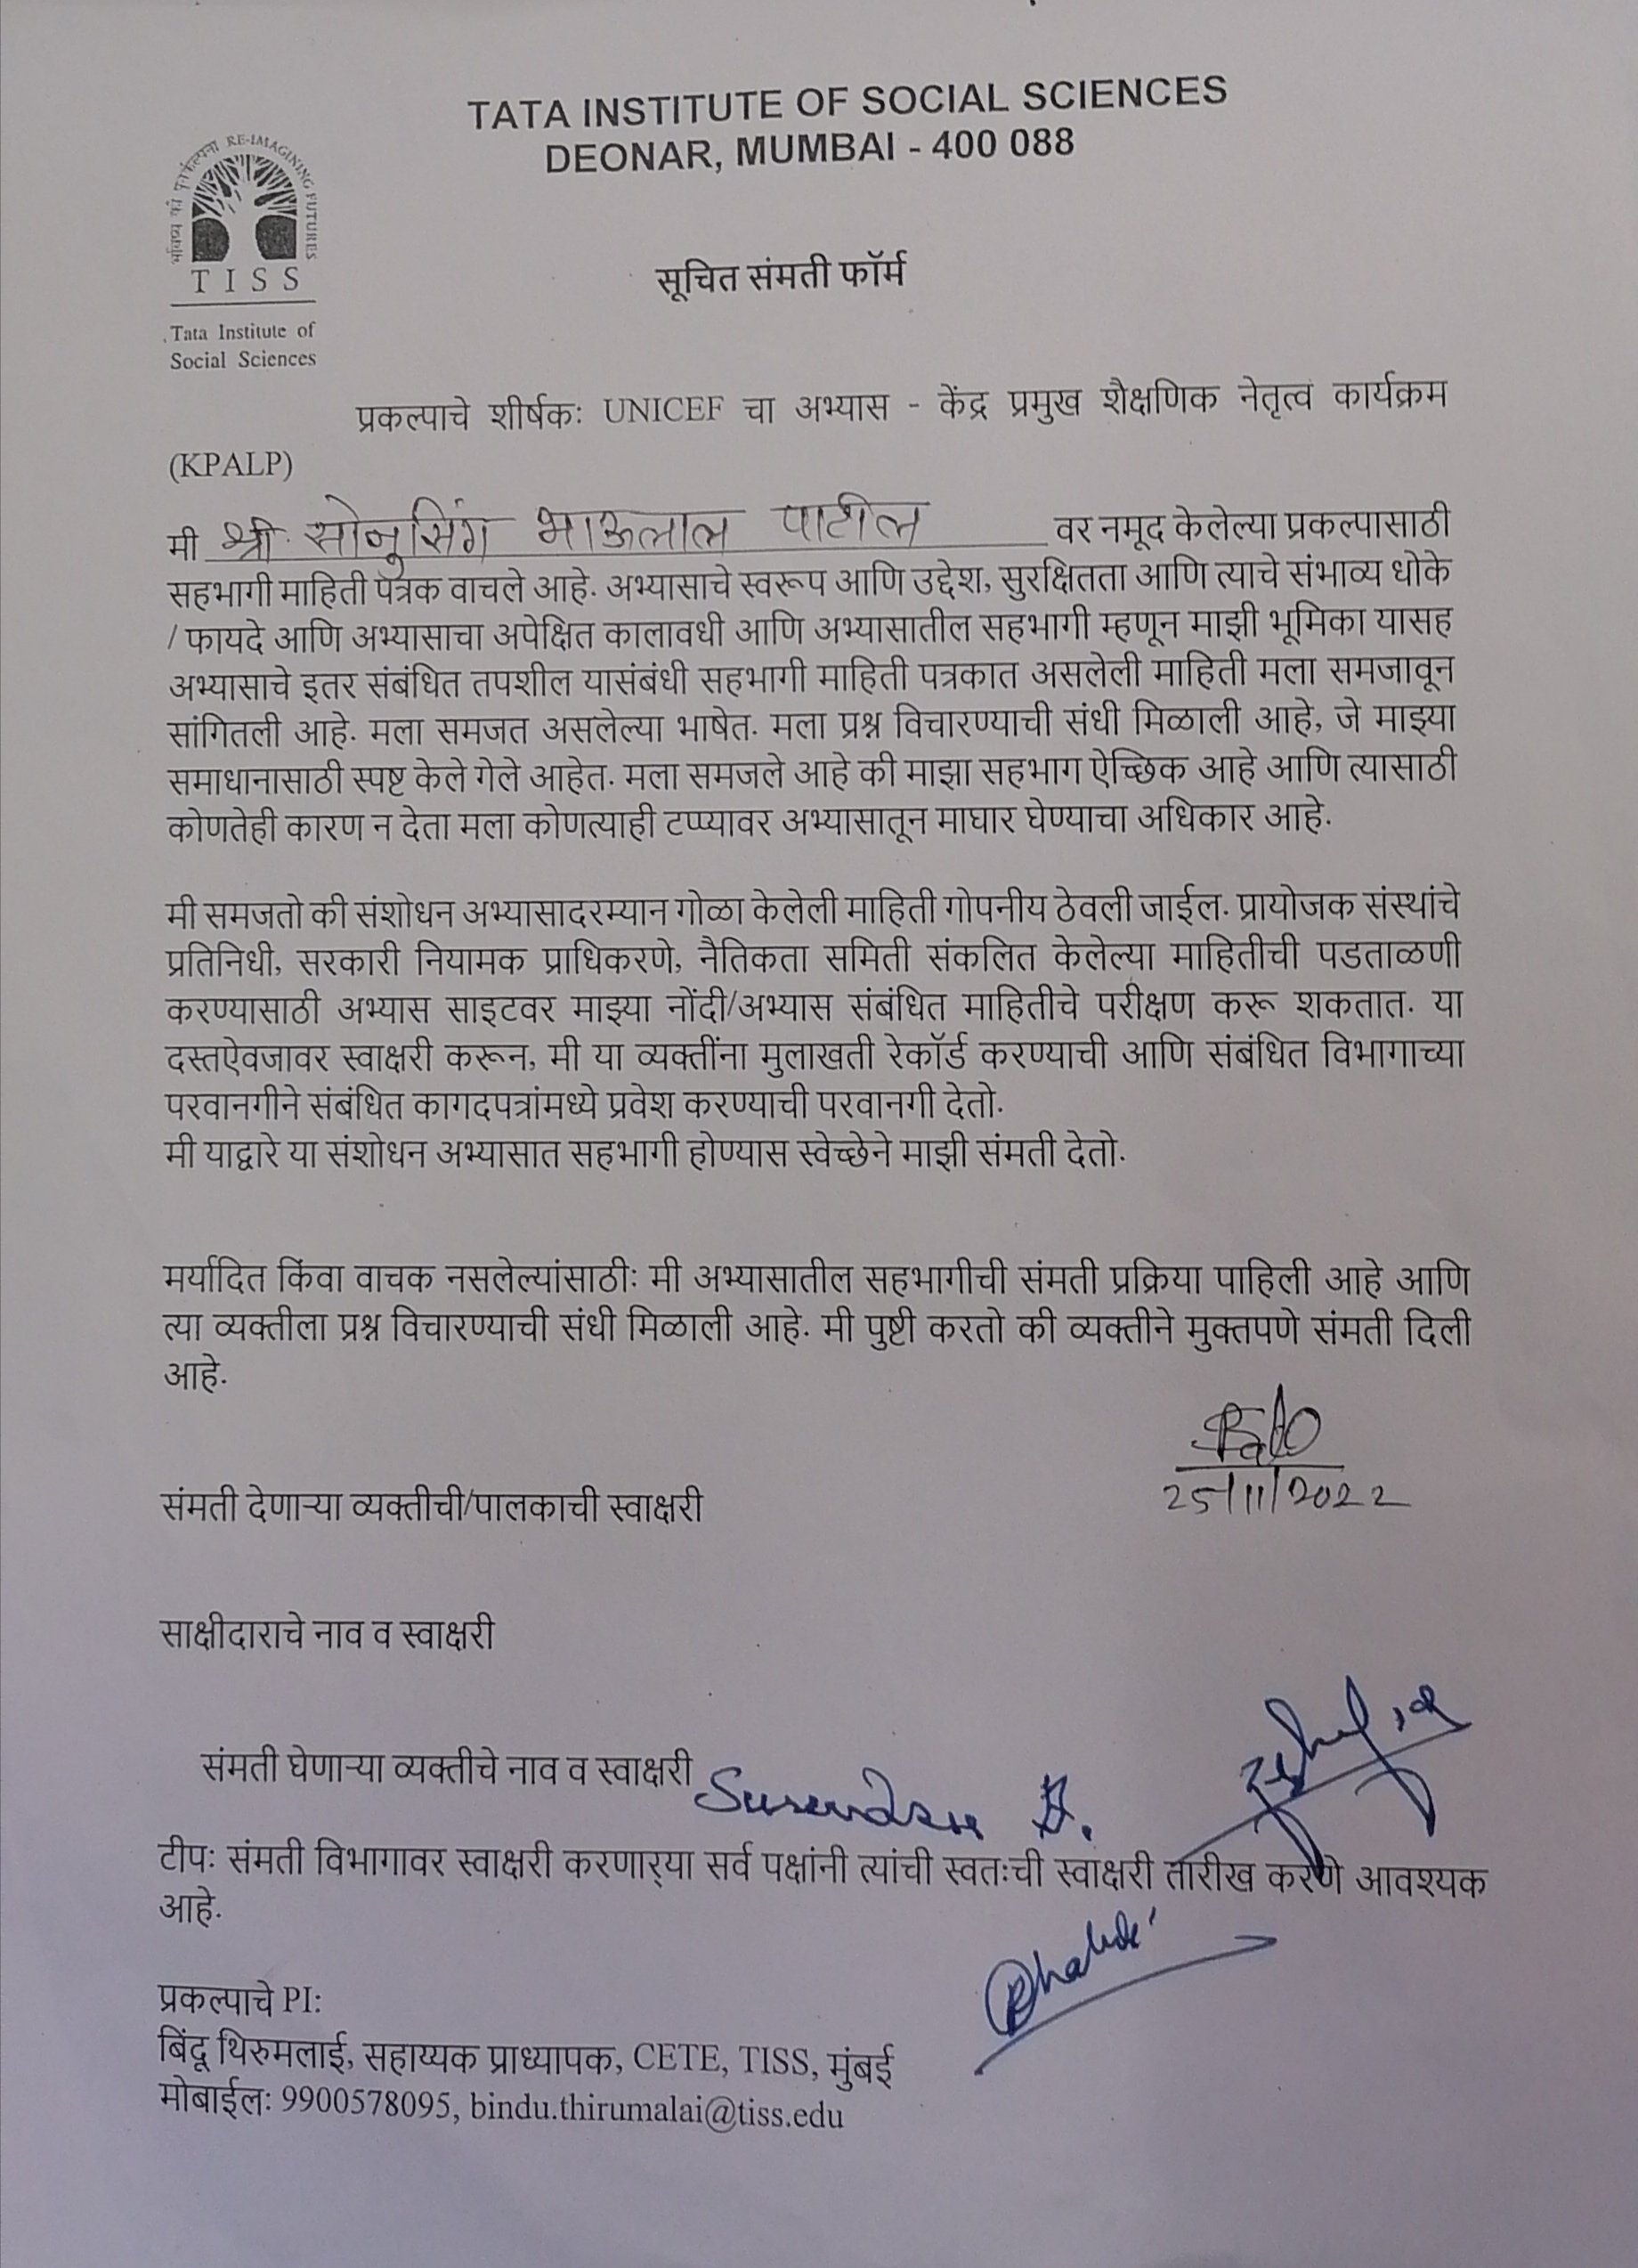 TATA INSTITUTE OF SOCIAL SCIENCES
DEONAR, MUMBAI - 400 088
RE-IMAGINING FUTURES
TISS
Tata Institute of
Social Sciences
सूचित संमती फॉर्म
प्रकल्पाचे शीर्षक: UNICEF चा अभ्यास - केंद्र प्रमुख शैक्षणिक नेतृत्व कार्यक्रम
(KPALP)
मी श्री. सोनुसिंग भाऊलाल पाटील वर नमूद केलेल्या प्रकल्पासाठी
सहभागी माहिती पत्रक वाचले आहे. अभ्यासाचे स्वरूप आणि उद्देश, सुरक्षितता आणि त्याचे संभाव्य धोके
/ फायदे आणि अभ्यासाचा अपेक्षित कालावधी आणि अभ्यासातील सहभागी म्हणून माझी भूमिका यासह
अभ्यासाचे इतर संबंधित तपशील यासंबंधी सहभागी माहिती पत्रकात असलेली माहिती मला समजावून
सांगितली आहे. मला समजत असलेल्या भाषेत. मला प्रश्न विचारण्याची संधी मिळाली आहे, जे माझ्या
समाधानासाठी स्पष्ट केले गेले आहेत. मला समजले आहे की माझा सहभाग ऐच्छिक आहे आणि त्यासाठी
कोणतेही कारण न देता मला कोणत्याही टप्प्यावर अभ्यासातून माघार घेण्याचा अधिकार आहे.
मी समजतो की संशोधन अभ्यासादरम्यान गोळा केलेली माहिती गोपनीय ठेवली जाईल. प्रायोजक संस्थांचे
प्रतिनिधी, सरकारी नियामक प्राधिकरणे, नैतिकता समिती संकलित केलेल्या माहितीची पडताळणी
करण्यासाठी अभ्यास साइटवर माझ्या नोंदी/अभ्यास संबंधित माहितीचे परीक्षण करू शकतात. या
दस्तऐवजावर स्वाक्षरी करून, मी या व्यक्तींना मुलाखती रेकॉर्ड करण्याची आणि संबंधित विभागाच्या
परवानगीने संबंधित कागदपत्रांमध्ये प्रवेश करण्याची परवानगी देतो.
मी याद्वारे या संशोधन अभ्यासात सहभागी होण्यास स्वेच्छेने माझी संमती देतो.
मर्यादित किंवा वाचक नसलेल्यांसाठी: मी अभ्यासातील सहभागीची संमती प्रक्रिया पाहिली आहे आणि
त्या व्यक्तीला प्रश्न विचारण्याची संधी मिळाली आहे. मी पुष्टी करतो की व्यक्तीने मुक्तपणे संमती दिली
आहे.
25/11/2022
संमती देणाऱ्या व्यक्तीची/पालकाची स्वाक्षरी
साक्षीदाराचे नाव व स्वाक्षरी
संमती घेणाऱ्या व्यक्तीचे नाव व स्वाक्षरी
टीप: संमती विभागावर स्वाक्षरी करणार्‍या सर्व पक्षांनी त्यांची स्वतःची स्वाक्षरी तारीख करणे आवश्यक
आहे.
प्रकल्पाचे PI:
बिंदू थिरुमलाई, सहाय्यक प्राध्यापक, CETE, TISS, मुंबई
मोबाईल: 9900578095, bindu.thirumalai@tiss.edu